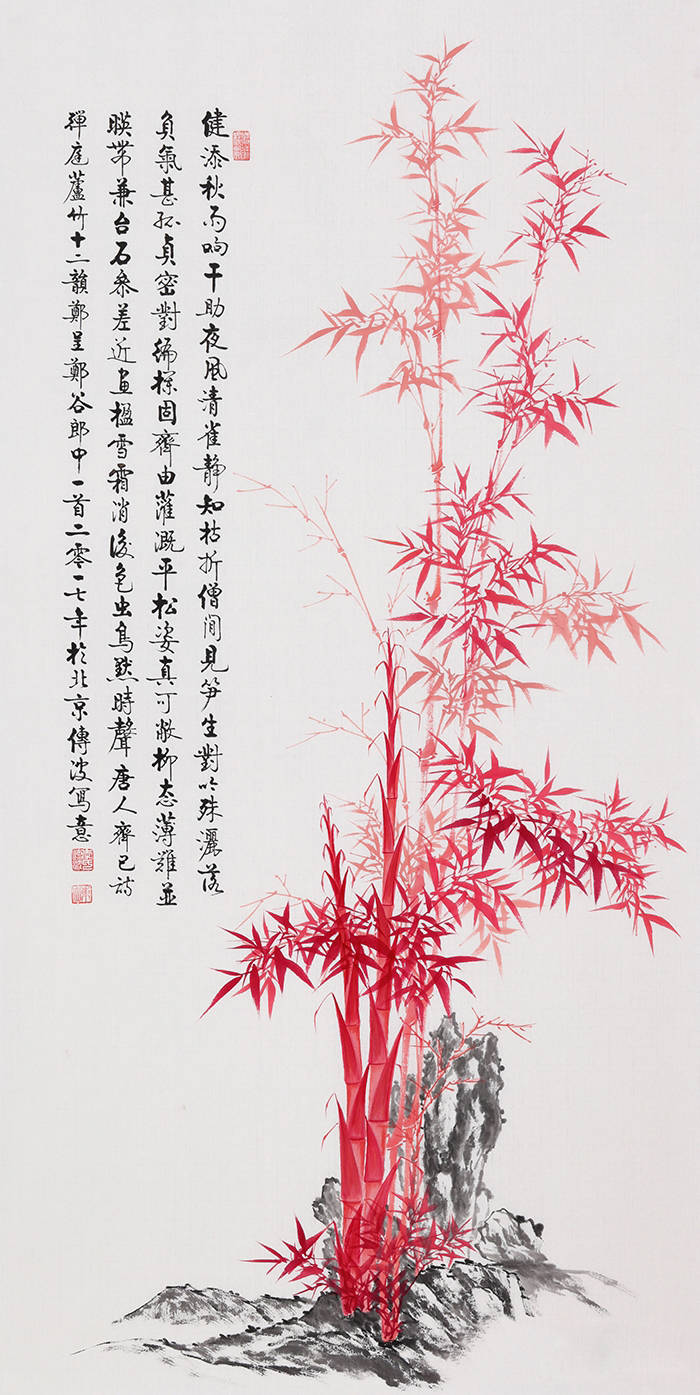 健添秋雨响干助夜風清雀静知枯折僧閒見笋生對吟殊灑落
負氣甚孤貞密對编探固齊由灌溉平松姿真可敵柳态薄難並
暎带兼台石參差近畫楹雪霜消後色虫鳥默時聲唐人齊己詩
禪庭蘆竹十二韻鄭呈鄭谷郎中一首二零一七年於北京傳波寫意